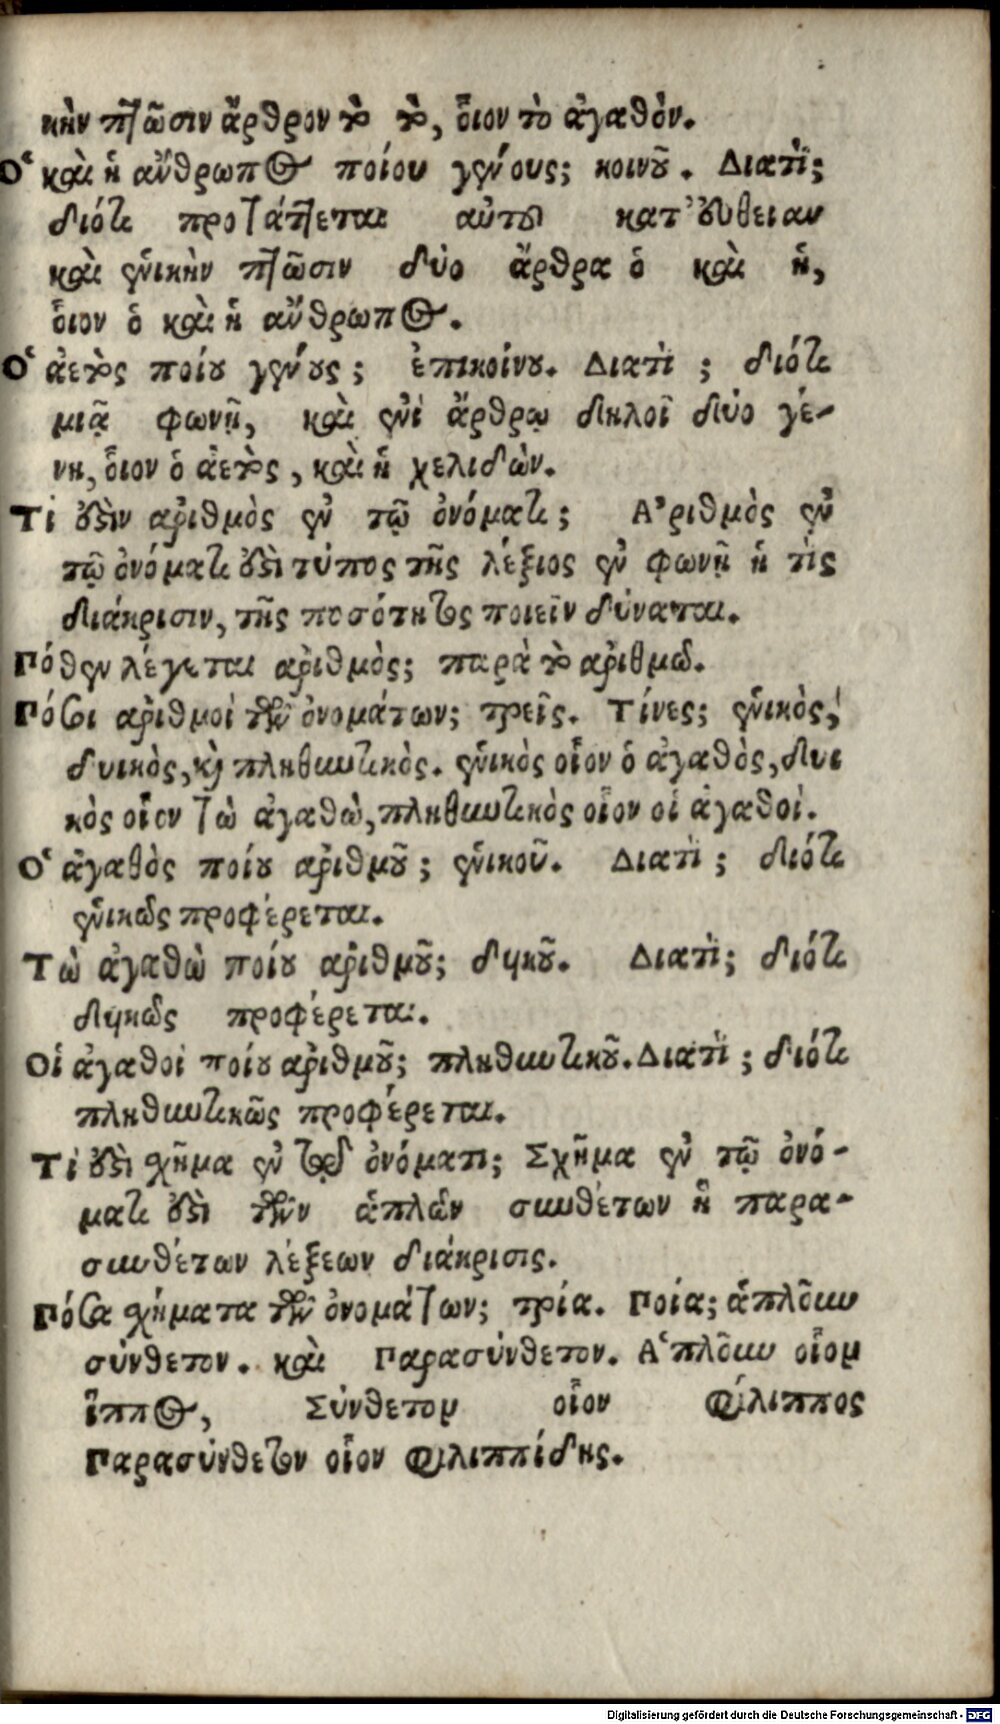 κὴν πτῶσιν ἄρθρον τὸ τὸ, οἷον τὸ ἀγαθὸν.
Ὁ καὶ ἡ ἄνθρωπος ποίου γένους; κοινοῦ. Διατὶ;
διότι προτάττεται αὐτοῦ κατ' εὐθεῖαν
καὶ ἑνικὴν πτῶσιν δύο ἄρθρα ὁ καὶ ἡ,
οἷον ὁ καὶ ἡ ἄνθρωπος.
Ὁ ἀετὸς ποίου γένους; ἐπικοίνου. Διατὶ; διότι
μιᾷ φωνῇ, καὶ ἑνὶ ἄρθρῳ δηλοῖ δύο γέ-
νη, οἷον ὁ ἀετὸς, καὶ ἡ χελιδὼν.
Τί ἐστὶν ἀριθμὸς ἐν τῷ ὀνόματι; Ἀριθμὸς ἐν
τῷ ὀνόματι ἐστὶ τύπος τῆς λέξιος ἐν φωνῇ ἥ τις
διάκρισιν, τῆς ποσότητος ποιεῖν δύναται.
Πόθεν λέγεται ἀριθμὸς; παρὰ τὸ ἀριθμῶ.
Πόσοι ἀριθμοὶ τῶν ὀνομάτων; τρεῖς. Τίνες; ἑνικὸς,
δυικὸς, καὶ πληθυντικὸς. ἑνικὸς οἷον ὁ ἀγαθὸς, δυι
κὸς οἷον τὼ ἀγαθὼ, πληθυντικὸς οἷον οἱ ἀγαθοὶ.
Ὁ ἀγαθὸς ποίου ἀριθμοῦ; ἑνικοῦ. Διατὶ; διότι
ἑνικῶς προφέρεται.
Τὼ ἀγαθὼ ποίου ἀριθμοῦ; δυικοῦ. Διατὶ; διότι
δυικῶς προφέρεται.
Οἱ ἀγαθοὶ ποίου ἀριθμοῦ; πληθυντικοῦ. Διατὶ; διότι
πληθυντικῶς προφέρεται.
Τί ἐστὶ σχῆμα ἐν τῷ ὀνόματι; Σχῆμα ἐν τῷ ὀνό-
ματι ἐστὶ τῶν ἁπλῶν συνθέτων ἢ παρα-
συνθέτων λέξεων διάκρισις.
Πόσα σχήματα τῶν ὀνομάτων; τρία. Ποία; ἁπλοῦν
σύνθετον. καὶ Παρασύνθετον. Ἁπλοῦν οἷον
ἵππος, Σύνθετον οἷον Φίλιππος
Παρασύνθετον οἷον Φιλιππίδης.
Digitalisierung gefördert durch die Deutsche Forschungsgemeinschaft - DFG